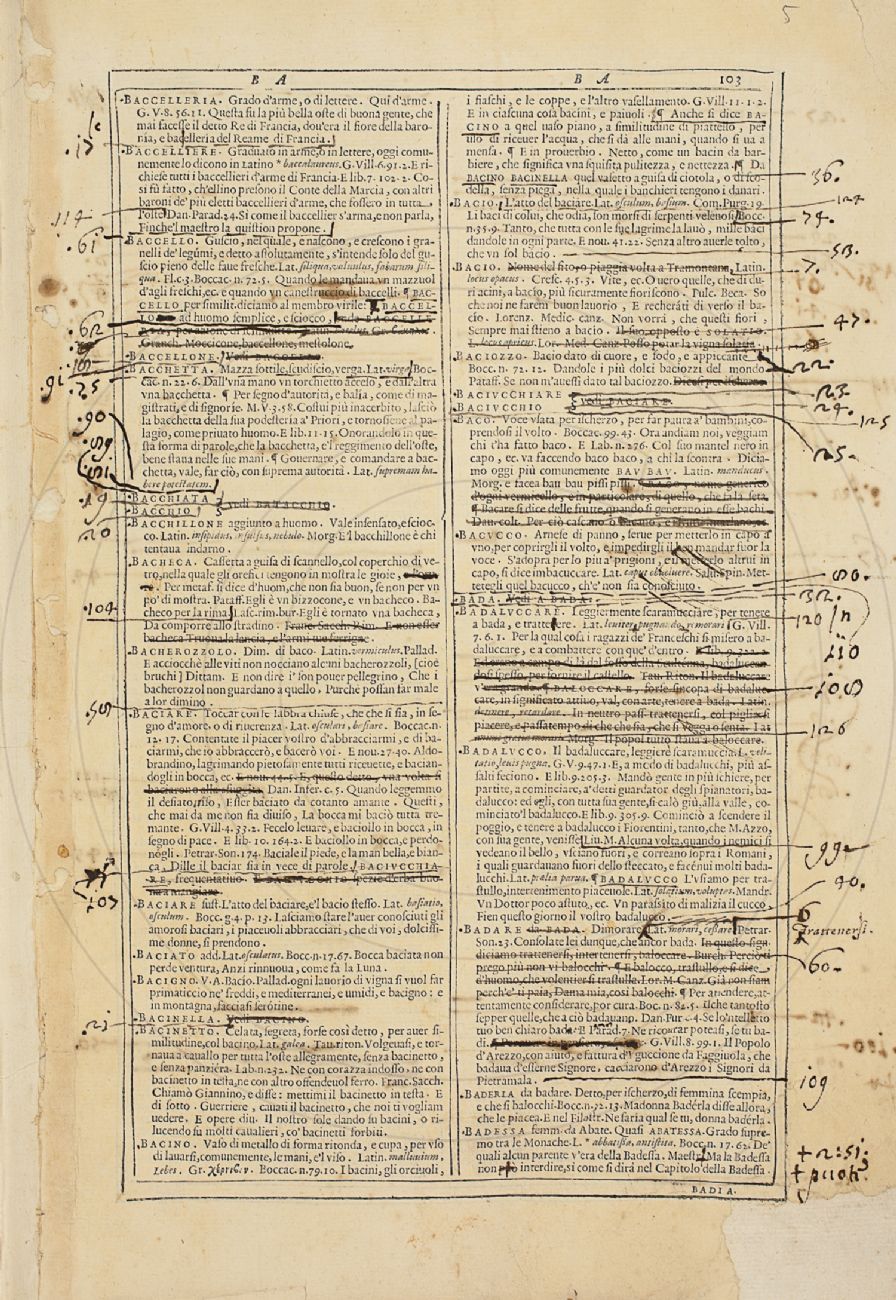 5
B A
B A
103
BACCELLERIA. Grado d'arme, o di lettere. Qui d'arme.
G. V. 8. 56. 11. Questa fu la più bella oste di buona gente, che
mai facesse il detto Re di Francia, dou'era il fiore della baro-
nia, e bacelleria del Reame di Francia.
BACCELLIERE. Graduato in arme, o in lettere, oggi comu-
nemente lo dicono in Latino * baccalaureus. G. Vill. 6. 91. 2. E ri-
chiese tutti i baccellieri d'arme di Francia. E lib. 7. 102. 2. Co-
si fu fatto, ch'ellino presono il Conte della Marcia, con altri
baroni de' più eletti baccellieri d'arme, che fossero in tutta
l'oste. Dan. Parad. 24. Si come il baccellier s'arma, e non parla,
Finche'l maestro la quistion propone.
BACCELLO. Guscio, nel quale, e nascono, e crescono i gra-
nelli de' legumi, e detto assolutamente, s'intende solo del gu-
scio pieno delle faue fresche. Lat. siliqua, valuulus, fabarum sili-
qua. Fl. c. 3. Boccac. n. 72. 5. Quando le mandaua vn mazzuol
d'agli freschi, ec. e quando vn canestruccio di baccelli. ¶ BAC-
CELLO per similit. diciamo al membro virile. ¶ BACCEL-
LO ad huomo semplice, e sciocco,
Granch. Moccicone, baccellone, mestolone.
BACCELLONE. Vedi BACCELLO.
BACCHETTA. Mazza sottile, scudiscio, verga. Lat. virga. Boc-
cac. n. 22. 6. Dall'vna mano vn torchietto acceso, e dall'altra
vna bacchetta. ¶ Per segno d'autorità, e balía, come di ma-
gistrati, e di signorie. M. V. 3. 58. Costui più inacerbito, lasciò
la bacchetta della sua podesteria a' Priori, e tornossene al pa-
lagio, come priuato huomo. E lib. 11. 15. Onorandolo in que-
sta forma di parole, che la bacchetta, e'l reggimento dell'oste,
bene staua nelle sue mani. ¶ Gouernare, e comandare a bac-
chetta, vale, far ciò, con suprema autorità. Lat. supremam ha-
bere potestatem.
BACCHIATA
BACCHIO vedi BATACCHIO.
BACCHILLONE aggiunto a huomo. Vale insensato, e scioc-
co. Latin. insipidus, insulsus, nebulo. Morg. E'l bacchillone è chi
tentaua indarno.
BACHECA. Cassetta a guisa di scannello, col coperchio di ve-
tro, nella quale gli orefici tengono in mostra le gioie,
Per metaf. si dice d'huom, che non sia buon, se non per vn
po' di mostra. Pataff. Egli è vn bizzocone, e vn bacheco. Ba-
checa per la rima. Lasc. rim. bur. Egli è tornato vna bacheca,
Da comporre allo stradino. Franc. Sacch. Rim. E non esser
bacheca Truona la lancia, e l'armi tue ferrigne.
BACHEROZZOLO. Dim. di baco. Latin. vermiculus. Pallad.
E acciocchè alle viti non noccian alcuni bacherozzoli, [cioè
bruchi] Dittam. E non dire i' son pouer pellegrino, Che i
bacherozzol non guardano a quello, Purchè possan far male
a lor dimino.
BACIARE. Toccar con le labbra chiuse, che che si sia, in se-
gno d'amore, o di riuerenza. Lat. osculari, basiare. Boccac. n.
12. 17. Contentate il piacer vostro d'abbracciarmi, e di ba-
ciarmi, che io abbraccerò, e bacerò voi. E nou. 27. 40. Aldo-
brandino, lagrimando pietosamente tutti riceuette, e bacian-
dogli in bocca, ec. E nou. 44. 5. E, questo detto, vna volta si
baciarono alla sfuggita. Dan. Infer. c. 5. Quando leggemmo
il desiato riso, Esser baciato da cotanto amante. Questi,
che mai da me non fia diuiso, La bocca mi baciò tutta tre-
mante. G. Vill. 4. 33. 2. Fecelo leuare, e baciollo in bocca, in
segno di pace. E lib. 10. 164. 2. E baciollo in bocca, e perdo-
nogli. Petrar. Son. 174. Baciale il piede, e la man bella, e bian-
ca, Dille il baciar sia in vece di parole. BACIVCCHIA-
RE, frequentatiuo.
BACIARE sust. L'atto del baciare, e'l bacio stesso. Lat. basiatio,
osculum. Bocc. g. 4. p. 13. Lasciamo stare l'auer conosciuti gli
amorosi baciari, i piaceuoli abbracciari, che di voi, dolcissi-
me donne, si prendono.
BACIATO add. Lat. osculatus. Bocc. n. 17. 67. Bocca baciata non
perde ventura, Anzi rinnuoua, come fa la Luna.
BACIGNO. V. A. Bacio. Pallad. ogni lauorio di vigna si vuol far
primaticcio ne' freddi, e mediterranei, e umidi, e bacigno: e
in montagna, facciasi serotine.
BACINELLA. Vedi BACINO.
BACINETTO. Celata, segreta, forse così detto, per auer si-
militudine, col bacino. Lat. galea. Tau. riton. Volgeuasi, e tor-
naua a cauallo per tutta l'oste allegramente, senza bacinetto,
e senza panziera. Lab. n. 232. Ne con corazza indosso, ne con
bacinetto in testa, ne con altro offendeuol ferro. Franc. Sacch.
Chiamò Giannino, e disse: mettimi il bacinetto in testa. E
di sotto. Guerriere, cauati il bacinetto, che noi ti vogliam
vedere. E opere diu. Il nostro sole dando su bacini, o ri-
lucendo su molti caualieri, co' bacinetti forbiti.
BACINO. Vaso di metallo di forma ritonda, e cupa, per vso
di lauarsi, comunemente, le mani, e'l viso. Latin. malluuium,
lebes. Gr. χέρνιβον. Boccac. n. 79. 10. I bacini, gli orciuoli,
i fiaschi, e le coppe, e l'altro vasellamento. G. Vill. 11. 1. 2.
E in ciascuna cosa bacini, e paiuoli. ¶ Anche si dice BA-
CINO a quel vaso piano, a similitudine di piattello, per
vso di riceuer l'acqua, che si dà alle mani, quando si va a
mensa. ¶ E in prouerbio. Netto, come un bacin da bar-
biere, che significa vna squisita pulitezza, e nettezza. ¶ Da
BACINO BACINELLA quel vasetto a guisa di ciotola, o di sco-
della, senza piega, nella quale i banchieri tengono i danari.
BACIO. L'atto del baciare. Lat. osculum, basium. Com. Purg. 19.
Li baci di colui, che odia, son morsi di serpenti velenosi. Bocc.
n. 35. 9. Tanto, che tutta con le sue lagrime la lauò, mille baci
dandole in ogni parte. E nou. 41. 22. Senza altro auerle tolto,
che vn sol bacio.
BACIO. Nome del sito, o piaggia volta a Tramontana, Latin.
locus opacus. Cresc. 4. 5. 3. Vite, ec. O uero quelle, che di du-
ri acini, a bacìo, più sicuramente fioriscono. Pulc. Beca. So
che noi ne farén buon lauorìo, E recheràti di verso il ba-
cìo. Lorenz. Medic. canz. Non vorrà, che questi fiori,
Sempre mai stieno a bacìo. Il suo opposto è SOLATIO.
L. locus apricus. Lor. Med. Canz. Posso potar la vigna solatia
BACIOZZO. Bacio dato di cuore, e sodo, e appiccante.
Bocc. n. 72. 12. Dandole i più dolci baciozzi del mondo
Pataff. Se non m'auessi dato tal baciozzo. Dicesi per ischerzo.
BACIVCCHIARE
BACIVCCHIO vedi BACIARE.
BACO. Voce vsata per ischerzo, per far paura a' bambini, co-
prendosi il volto. Boccac. 99. 43. Ora andiam noi, veggiam
chi t'ha fatto baco. E Lab. n. 276. Col suo mantel nero in
capo, ec. va faccendo baco baco, a chi la scontra. Dicia-
mo oggi più comunemente BAV BAV. Latin. manducus.
Morg. e facea bau bau pissi pissi. ¶ BACO, nome generico
d'ogni vermicello, e in particolare, di quello, che fa la seta.
¶ Bacare si dice delle frutte, quando si generano in esse bachi.
BACVCCO. Arnese di panno, serue per metterlo in capo a
vno, per coprirgli il volto, e impedirgli il non mandar fuor la
voce. S'adopra per lo piu a' prigioni, e in metterlo altrui in
capo, si dice imbacuccare. Lat. caput obuoluere. Salust. Spin. Met-
tetegli quel bacucco, ch'e' non sia conosciuto.
BADA. Vedi A BADA.
BADALVCCARE. Leggiermente scaramucciare, per tenere
a bada, e trattenere. Lat. leuiter pugnando, remorari. G. Vill.
7. 6. 1. Per la qual cosa i ragazzi de' Franceschi si misero a ba-
daluccare, e a combattere con que' d'entro.
BADALVCCO. Il badaluccare, leggieri scaramuccia. L. veli-
tatio, leuis pugna. G. V. 9. 47. 1. E, a modo di badalucchi, più as-
salti feciono. E lib. 9. 205. 3. Mandò gente in più schiere, per
partite, a cominciare, a' detti guardator degli spianatori, ba-
dalucco: ed egli, con tutta sua gente, si calò giù, alla valle, co-
minciato'l badalucco. E lib. 9. 305. 9. Cominciò a scendere il
poggio, e tenere a badalucco i Fiorentini, tanto, che M. Azzo,
con sua gente, venisse. Liu. M. Alcuna volta, quando i nemici si
vedeano il bello, vsciano fuori, e correano sopra i Romani,
i quali guardauano fuori dello steccato, e facénui molti bada-
lucchi. Lat. prælia parua. ¶ BADALVCCO L'vsiamo per tra-
stullo, intertenimento piaceuole. Lat. solatium, voluptas. Mandr.
Vn Dottor poco astuto, ec. Vn parasito di malizia il cucco,
Fien questo giorno il vostro badalucco.
BADARE da BADA. Dimorare. Lat. morari, cessare. Petrar.
Son. 23. Consolate lei dunque, che ancor bada. In questo sign.
diciamo trattenersi, intertenersi, baloccare. Burch. Perciò ti
prego, più non vi balocchi. ¶ E balocco, trastullo, e si dice
d'huomo, che volentier si trastulle. Lor. M. Canz. Già non siam
perch'e' ti paia, Dama mia, così balocchi. ¶ Per attendere, at-
tentamente considerare, por cura. Boc. n. 82. 5. Il che tanto sto
seppe r quelle, che a ciò badauano. Dan. Pur. c. 4. Se lo'ntelletto
tuo ben chiaro bada. E Parad. 7. Ne ricourar poteasi, se tu ba-
di. G. Vill. 8. 99. 1. Il Popolo
d'Arezzo, con aiuto, e fattura d'Vguccione da Faggiuola, che
badaua d'esserne Signore, cacciarono d'Arezzo i Signori da
Pietramala.
BADERIA da badare. Detto, per ischerzo, di femmina scempia,
e che si balocchi. Bocc. n. 72. 13. Madonna Badérla disse allora,
che le piacea. E nel Filostr. Ne saria qual se tu, donna badérla.
BADESSA femm. da Abate. Quasi ABATESSA. Grado supre-
mo tra le Monache. L. * abbatissa, antistita. Bocc. n. 17. 62. De'
quali alcun parente v'era della Badessa. Maestr. Ma la Badessa
non può interdire, si come si dirà nel Capitolo della Badessa.
BADIA.
114
61
62
91
25
90
19
20
104
103
21
36.
124
74.
53.
7.
47.
22.
23.
24.
125
25.
80.
32.
120
110
105
126
99
90.
6
Trattenersi.
60.
109